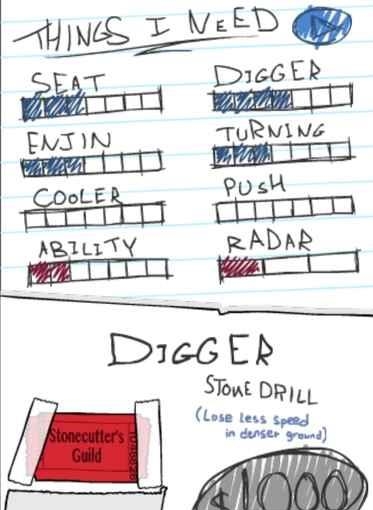 THINGS I NEED
SEAT
DIGGER
ENJIN
TURNING
COOLER
PUSH
ABILITY
RADAR
DIGGER
STONE DRILL
(Lose less speed
in denser ground)
Stonecutter's
Guild
1000